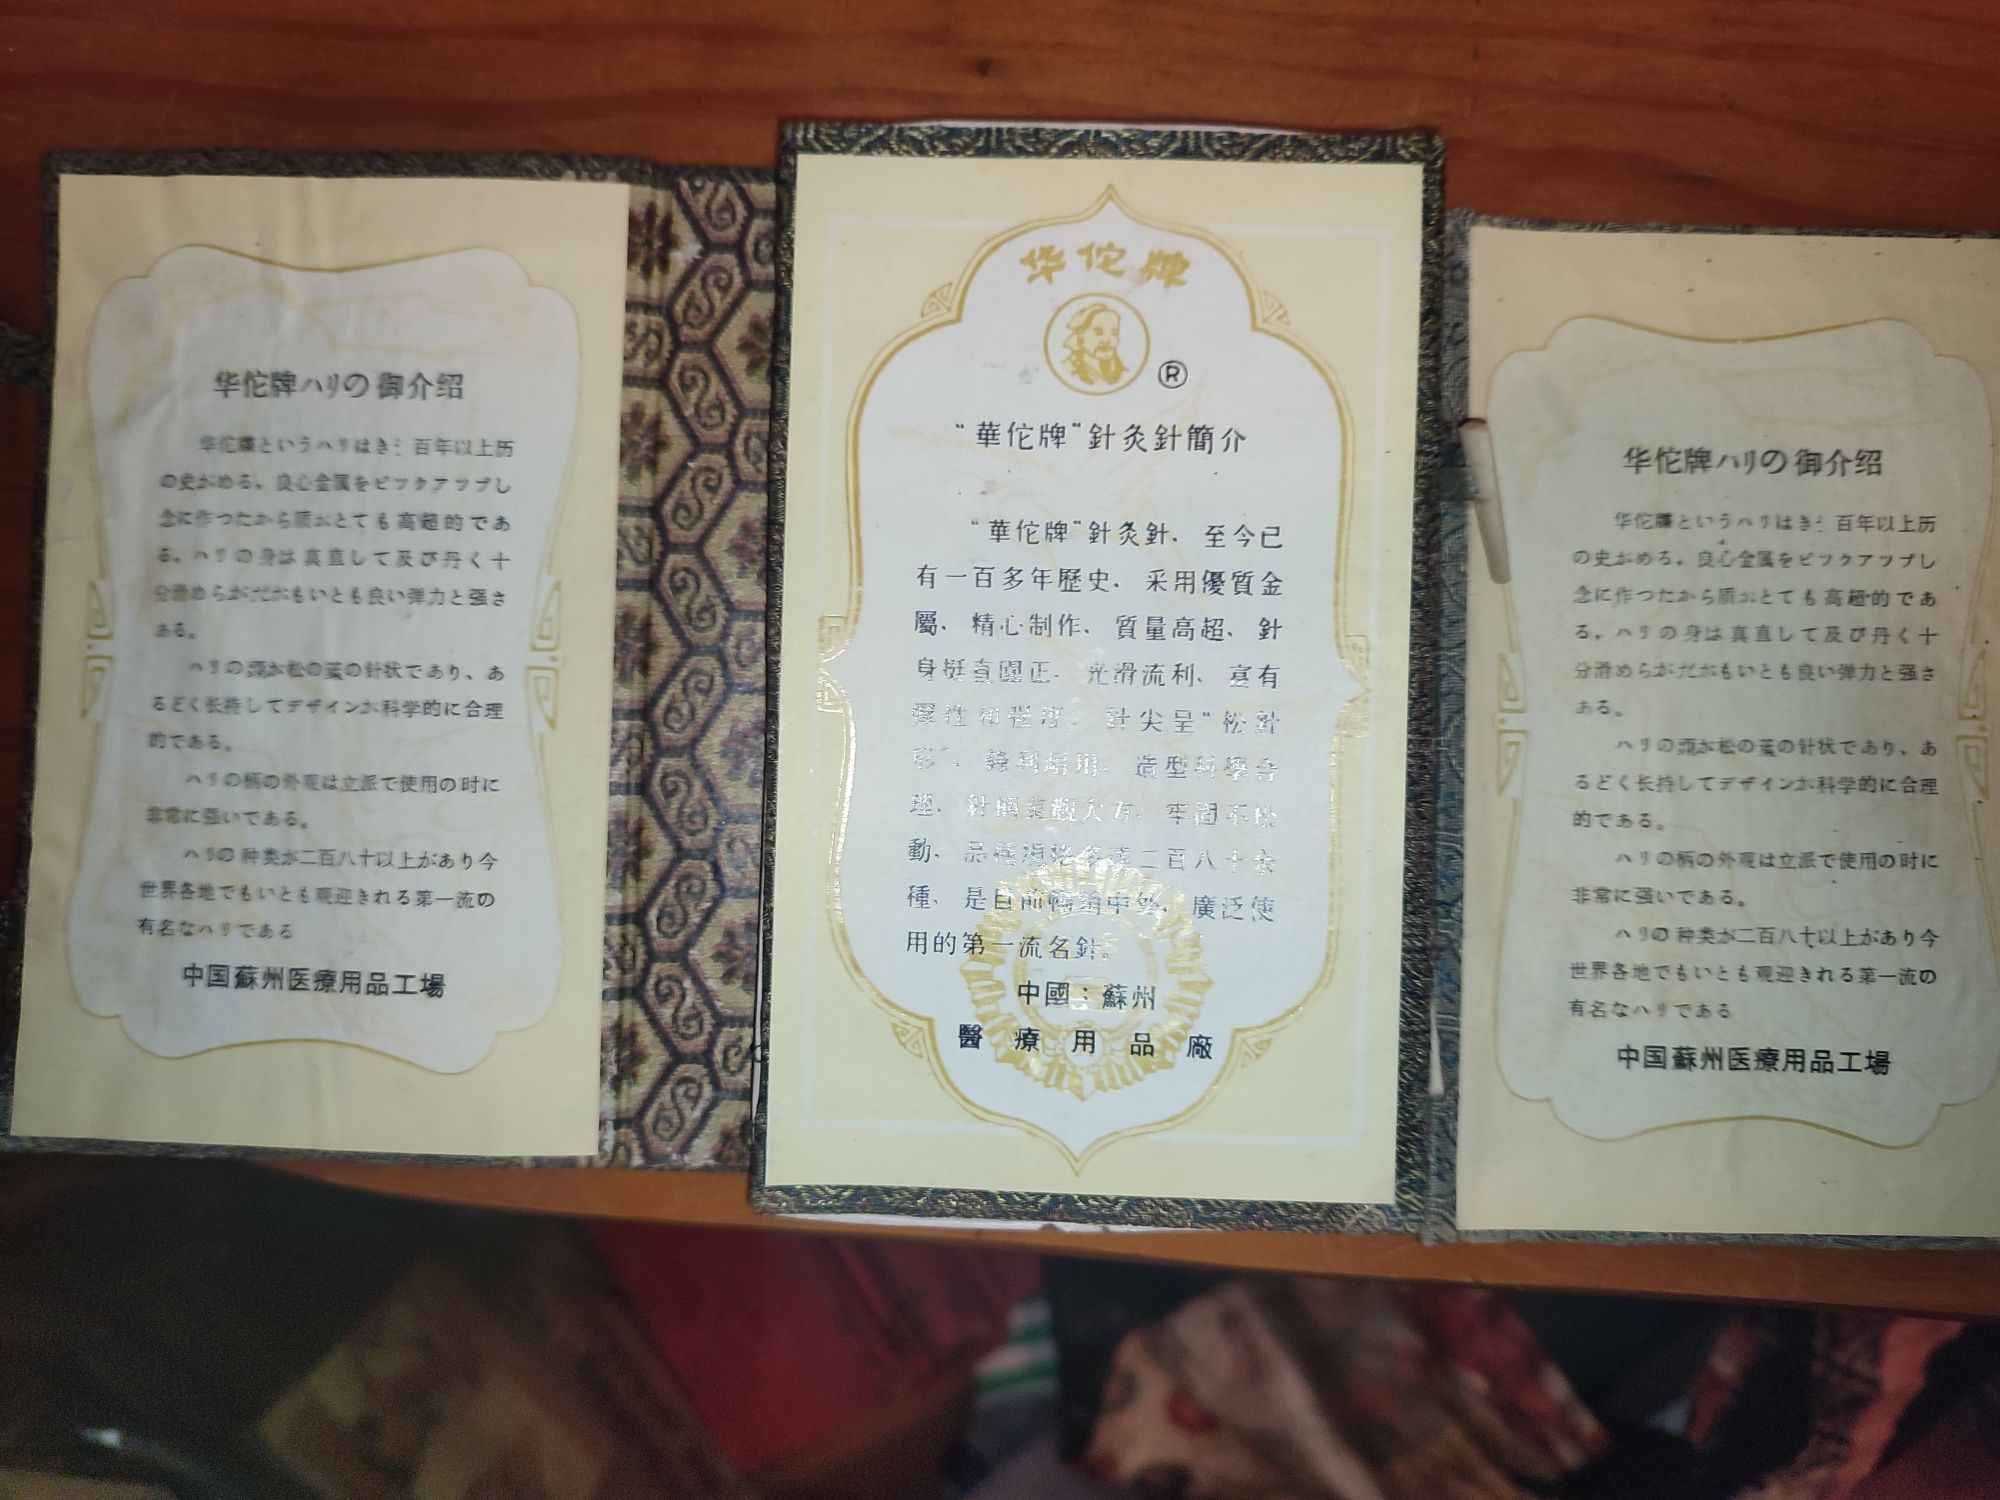 华佗牌ハリの御介绍
华佗牌というハリはき 百年以上历
の史がめる。良心金属をピツクアツプし
念に作つたから质がとても高超的であ
る。ハリの身は真直して及び丹く十
分滑めらがだがもいとも良い弹力と强さ
ある。
ハリの頭が松の葉の针状であり、あ
るどく长持してデザインが科学的に合理
的である。
ハリの柄の外观は立派で使用の时に
非常に强いである。
ハリの种类が二百八十以上があり今
世界各地でもいとも观迎きれる第一流の
有名なハリである
中国蘇州医療用品工場
华佗牌
®
“華佗牌”針灸針簡介
“華佗牌”針灸針、至今已
有一百多年歷史、采用優質金
屬、精心制作、質量高超、針
身挺直圓正、光滑流利、富有
彈性和强度、針尖呈“松針
形”、鋒利耐用、造型科學合
理、針柄美觀大方、牢固不松
動、品種規格多達二百八十余
種、是目前暢銷中外、廣泛使
用的第一流名針。
中國：蘇州
醫療用品廠
华佗牌ハリの御介绍
华佗牌というハリはき 百年以上历
の史がめる。良心金属をピツクアツプし
念に作つたから质がとても高超的であ
る。ハリの身は真直して及び丹く十
分滑めらがだがもいとも良い弹力と强さ
ある。
ハリの頭が松の葉の针状であり、あ
るどく长持してデザインが科学的に合理
的である。
ハリの柄の外观は立派で使用の时に
非常に强いである。
ハリの种类が二百八十以上があり今
世界各地でもいとも观迎きれる第一流の
有名なハリである
中国蘇州医療用品工場